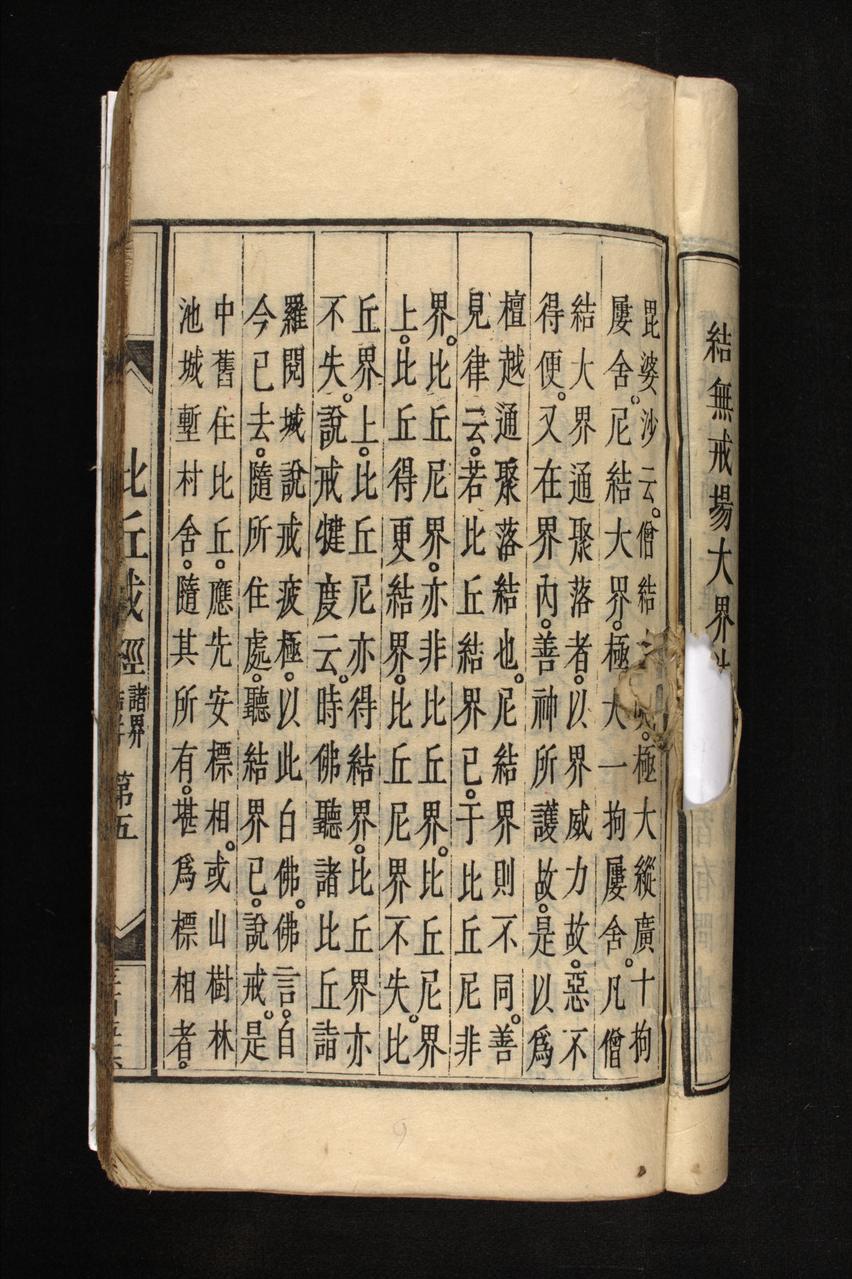 結無戒場大界
毘婆沙云。僧結大界。極大縱廣十拘
屢舍。尼結大界。極大一拘屢舍。凡僧
結大界通聚落者。以界威力故。惡不
得便。又在界內。善神所護故。是以爲
檀越通聚落結也。尼結界則不同。善
見律云。若比丘結界已。于比丘尼非
界。比丘尼界。亦非比丘界。比丘尼界
上。比丘得更結界。比丘尼界不失。比
丘界上。比丘尼亦得結界。比丘界亦
不失。說戒犍度云。時佛聽諸比丘詣
羅閱城說戒疲極。以此白佛。佛言。自
今已去。隨所住處。聽結界已。說戒。是
中舊住比丘。應先安標相。或山樹林
池城塹村舍。隨其所有。堪爲標相者。
比丘戒經 諸界 第五